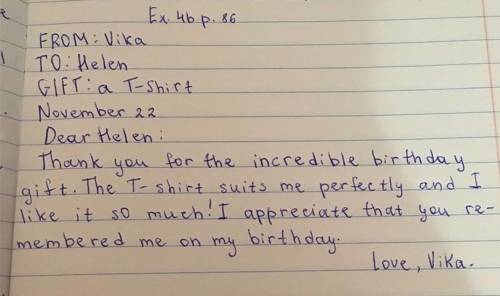 Ex. 4b p. 86
FROM: Vika
TO: Helen
GIFT: a T-shirt
November 22
Dear Helen:
Thank you for the incredible birthday
gift. The T-shirt suits me perfectly and I
like it so much! I appreciate that you re-
membered me on my birthday.
Love, Vika.